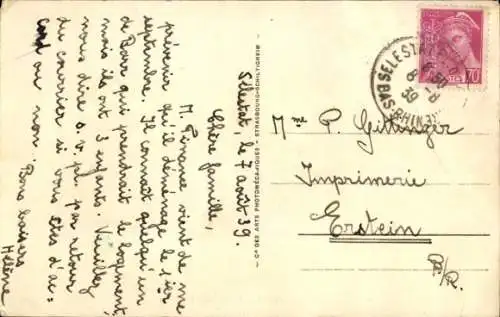 Sélestat, le 7 août 39.
Chère famille,
M. Finance vient de me
prévenir qu'il déménage le 1ier
septembre. Il connaît quelqu'un
de Barr qui prendrait le logement,
mais ils ont 3 enfants. Veuillez
nous dire s. v. pl. par retour
du courrier si vous êtes d'ac=
cord ou non.
Bons baisers
Hélène
Cie DES ARTS PHOTOMÉCANIQUES - STRASBOURG-SCHILTIGHEIM
SELESTAT
8 - 8
39
BAS RHIN
70
Mme P. Gittinger
Imprimerie
Erstein
B/R.